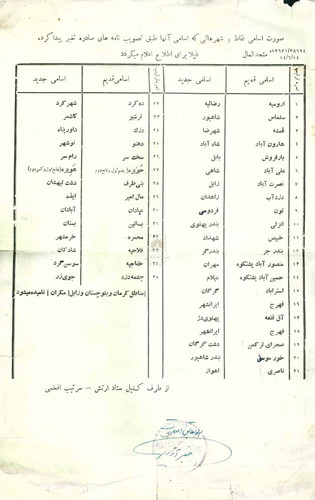 صورت اسامی نقاط و شهرهائی که اسامی آنها طبق تصویب نامه های صادره تغیر پیدا کرده
متحدالمال
ذیلا برای اطلاع اعلام میگردد
اسامی قدیم اسامی جدید
۱ ارومیه رضائیه
۲ سلماس شاهپور
۳ قمشه شهرضا
۴ هارون آباد شاه آباد
۵ بارفروش بابل
۶ علی آباد شاهی
۷ نصرت آباد زابل
۸ دزدآب زاهدان
۹ تون فردوسی
۱۰ انزلی بندر پهلوی
۱۱ خبیص شهداد
۱۲ بندر جز بندرگز
۱۳ منصور آباد پشتکوه مهران
۱۴ حسین آباد پشتکوه عیلام
۱۵ استراباد گرگان
۱۶ فهرج ایرانشهر
۱۷ آق قلعه پهلوی دژ
۱۸ فهرج ایرانشهر
۱۹ صحرای ترکمن دشت گرگان
۲۰ خور موسی بندر شاهپور
۲۱ ناصری اهواز
اسامی قدیم اسامی جدید
۲۲ ده کرد شهر کرد
۲۳ ترشیز کاشمر
۲۴ دزک داور پناه
۲۵ دهنو نوشهر
۲۶ سخت سر رام سر
۲۷ حویزه هویزه
۲۸ بنی طرف دشت میشان
۲۹ مال امیر ایذه
۳۰ عبادان آبادان
۳۱ بساتین بستان
۳۲ محمره خرمشهر
۳۳ فلاحیه شادگان
۳۴ خفاجیه سوسن گرد
۳۵ چشمه دزد جوی زر
(مناطق کرمان و بلوچستان و زابل (مکران) نامیده میشود
از طرف کفیل ستاد ارتش - سرتیپ افخمی